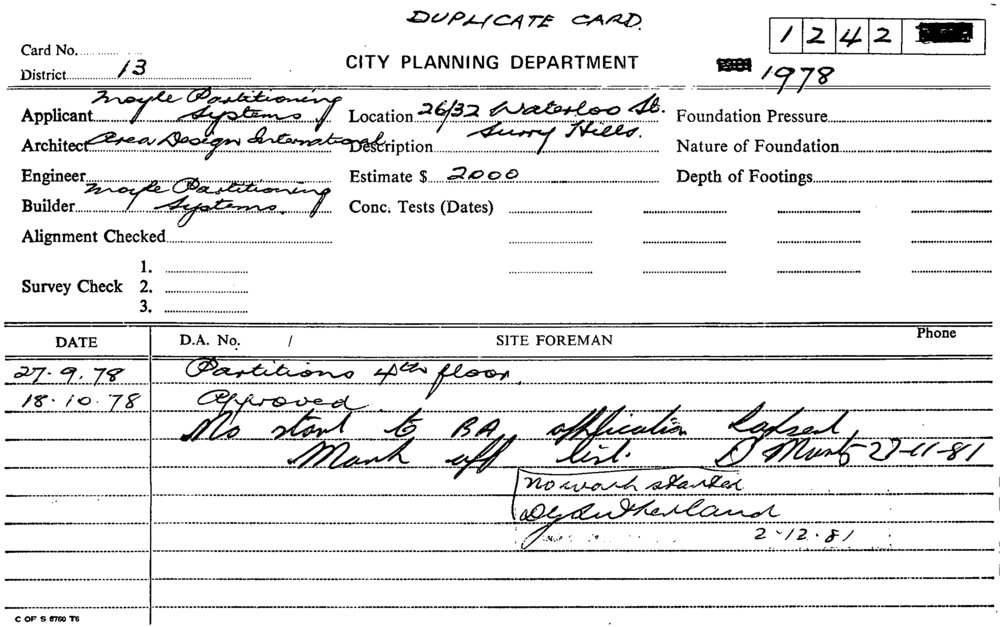 DUPLICATE CARD.
1242
Card No.
District 13
CITY PLANNING DEPARTMENT
1978
Applicant Moyle Partitioning Systems
Location 26/32 Waterloo St. Surry Hills.
Foundation Pressure
Architect Area Design International
Description
Nature of Foundation
Engineer
Estimate $ 2000
Depth of Footings
Builder Moyle Partitioning Systems.
Conc. Tests (Dates)
Alignment Checked
Survey Check
1.
2.
3.
DATE D.A. No. / SITE FOREMAN Phone
27.9.78 Partitions 4th floor.
18.10.78 Approved
No start to BA application Lapsed
Mark off list. D 27-11-81
No work started
Sutherland
2.12.81
C OF S 6760 T6